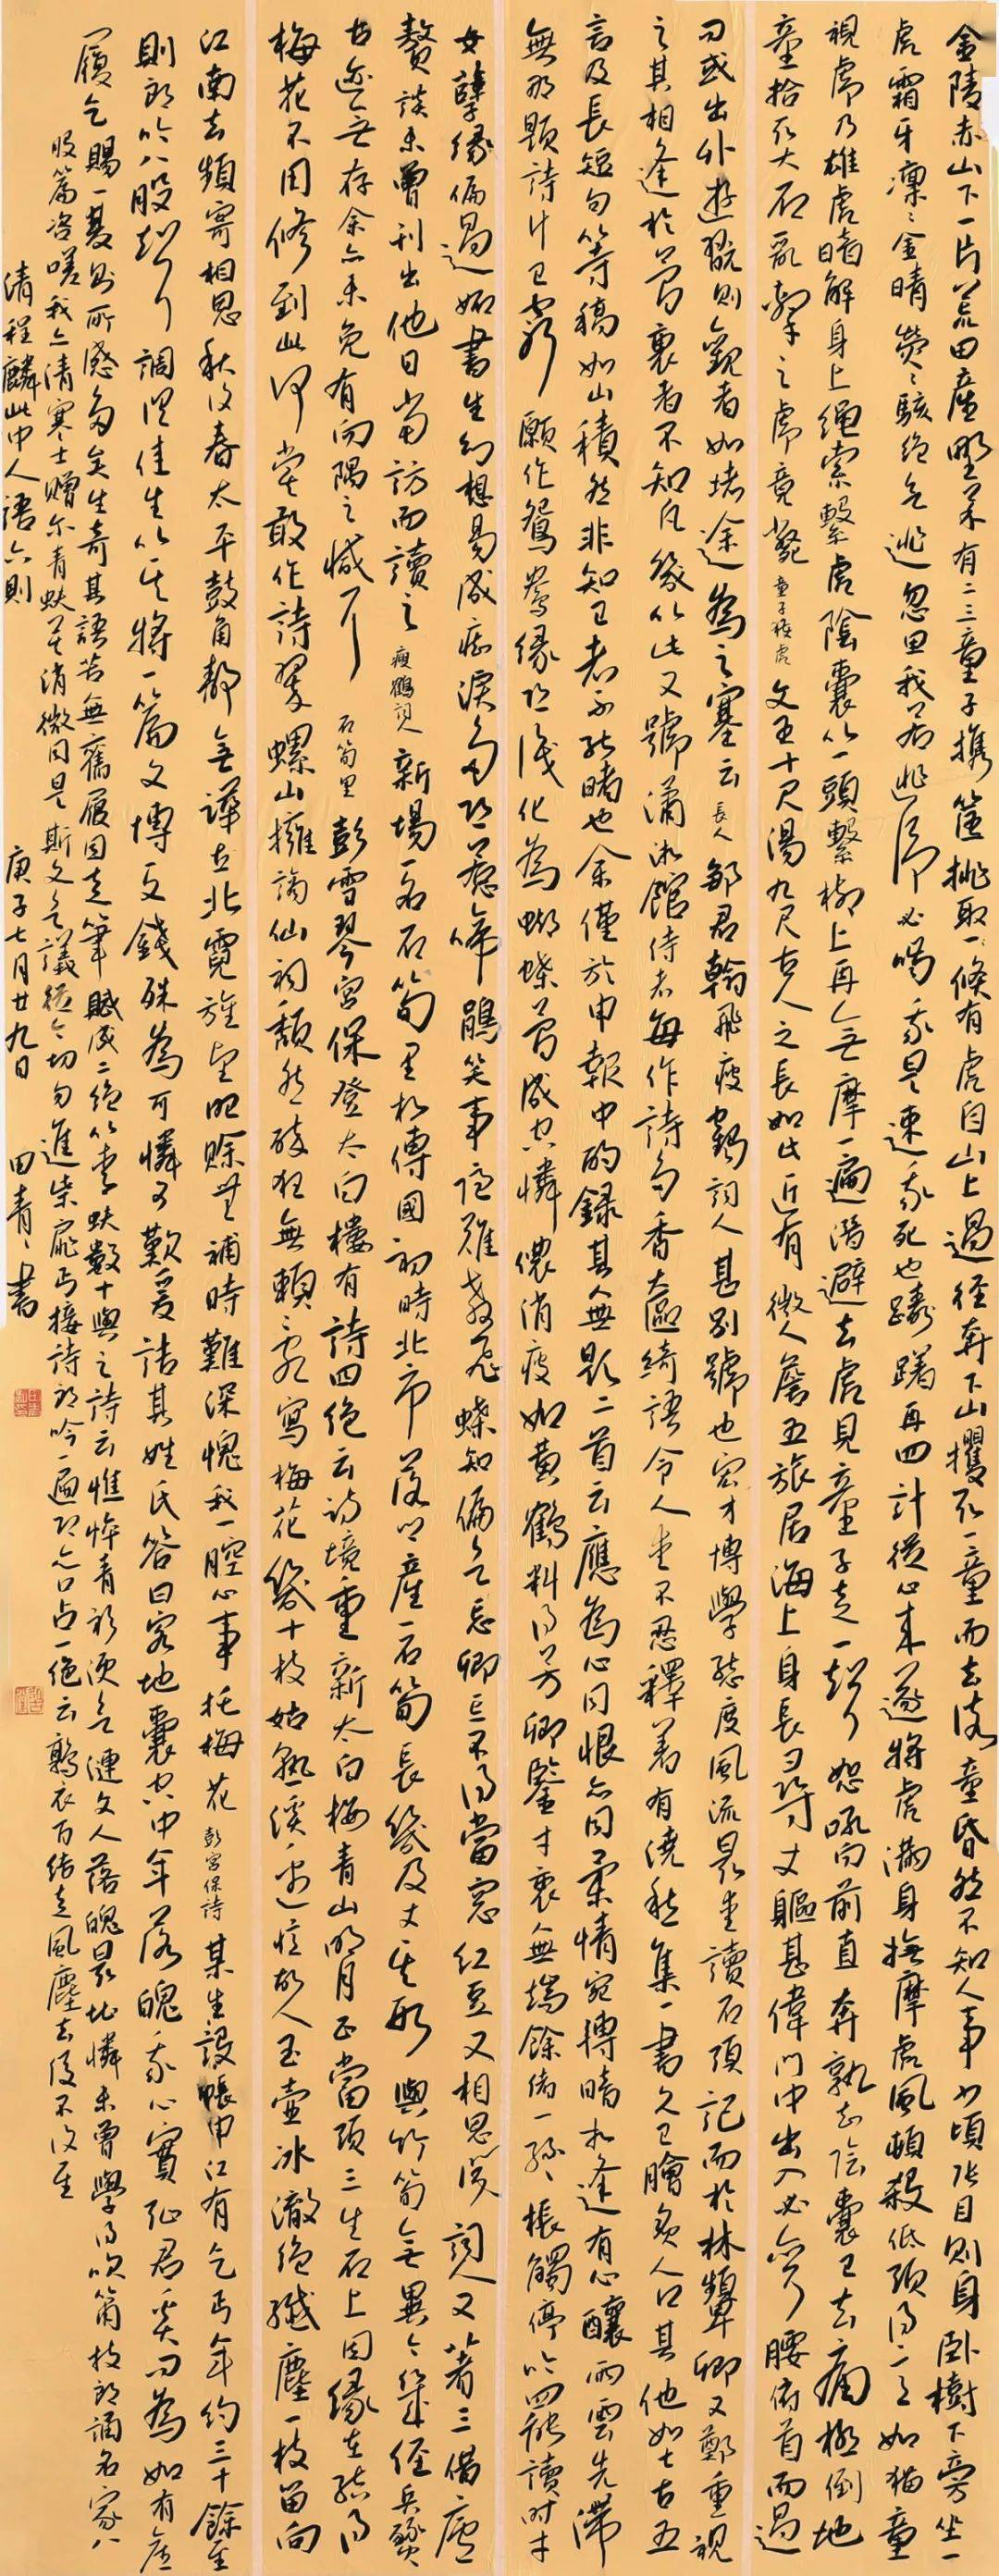 金陵赤山下一片荒田產野菜有二三童子攜筐挑取一條有虎自山上過徑奔下山攫取一童而去後童昏然不知人事少頃張目則身臥樹下旁坐一
虎霜牙凜凜金睛熒熒駭絕無逃忽思我若逃彼必噉我是速我死也躊躇再四計從心來遂將虎滿身撫摩虎風頓殺低頭得得如貓童
視虎乃雄虎睹解身上繩索繫虎陰囊以一頭繫樹上再無摩一遍潛避去虎見童子走一躍怒吼向前直奔孰知陰囊已去痛極倒地
童拾取大石亂擊之虎竟斃童子殺虎文王十尺湯九尺古人之長如此近有徽人詹五旅居海上身長尋丈軀甚偉門中出入必彎腰俯首而過
司或出外遊翫則觀者如堵途為之塞云長人鄒君翰飛瘦鶴詞人其別號也宏才博學態度風流最愛讀石頭記而於林顰卿又鄭重視
之其相逢於夢裏者不知凡幾以此又號瀟湘館侍者每作詩句香奩綺語令人愛不忍釋著有澆愁集一書久已膾炙人口其他如七古五
言及長短句等稿如山積然非知已者不能睹也余僅於申報中的錄其無題二首云應為心同恨亦同柔情宛轉暗相逢有心釀雨雲先滯
無那題詩汁已窮願作鴛鴦緣恐淺化為蝴蝶夢成空憐儂消瘦如黃鶴料得芳卿鑒寸衷無端餘緒一絲絲棖觸停吟四韻讀時才
女孽緣偏易近如書生幻想易成痴淚多恐惹啼鵑笑事詭難教飛蝶知偏欲忘卿忘不得當窗紅豆又相思瘦詞人又著三借廬
贅談未曾刊出他日當訪而讀之瘦鶴詞人新場一名石筍里相傳國初時北市後沙產一石筍長幾及丈其形與竹筍無異今筍經兵燹
古迹無存余亦未免有向隅之憾耳石筍里彭雪琴宮保登太白樓有詩四絕云詩境重新太白樓青山明月正當頭三生石上因緣在結得
梅花不用修到此何嘗敢作詩翠螺山擁謫仙祠頹然醉狂無賴亂寫梅花幾十枝姑熟溪邊憶故人玉壺冰澈絕纖塵一枝留向
江南去頻寄相思秋復春太平鼓角靜無譁直北霓旌望眼賒無補時艱深愧我一腔心事托梅花彭宮保詩某生設帳申江有乞丐年約三十餘至
則朗吟八股鏗調淫佳生以其將一篇文博文錢殊為可憐可歎爰詰其姓氏答曰客地囊空中年落魄我心實死君奚問為如有虛
一履乞賜一雙則所感多矣生奇其語苦無舊履因走筆賦成二絕以青蚨數十與之詩云憔悴青衫涕欲漣文人落魄最堪憐未曾學得吹簫技朗誦名家八
股篇咨嗟我亦清寒士贈尔青蚨莫消微同是斯文無議從今切勿進柴扉丐接詩朗吟一遍即亦口占一絕云鶉衣百結走風塵去後不復至
清程麟此中人語六則 庚子七月廿九日 田青青書